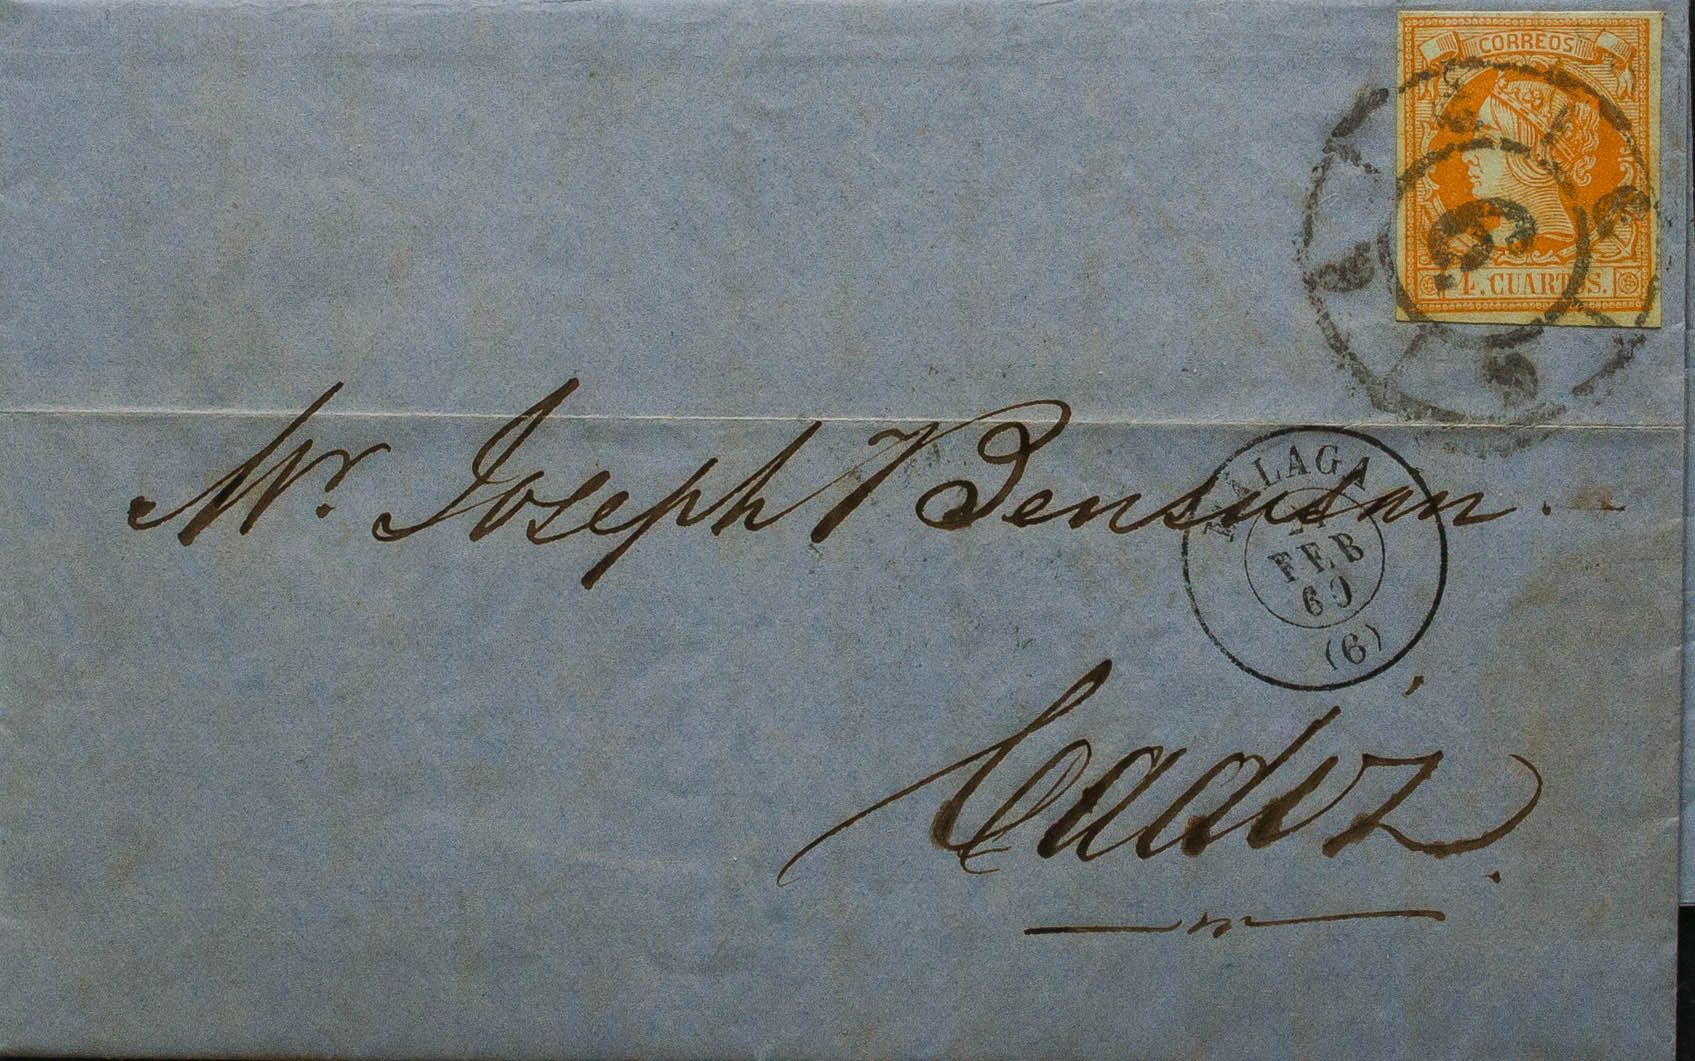 CORREOS
6
4. CUARTOS.
Mr. Joseph Bensusan.
MALAGA
FEB
60
(6)
Cadiz.